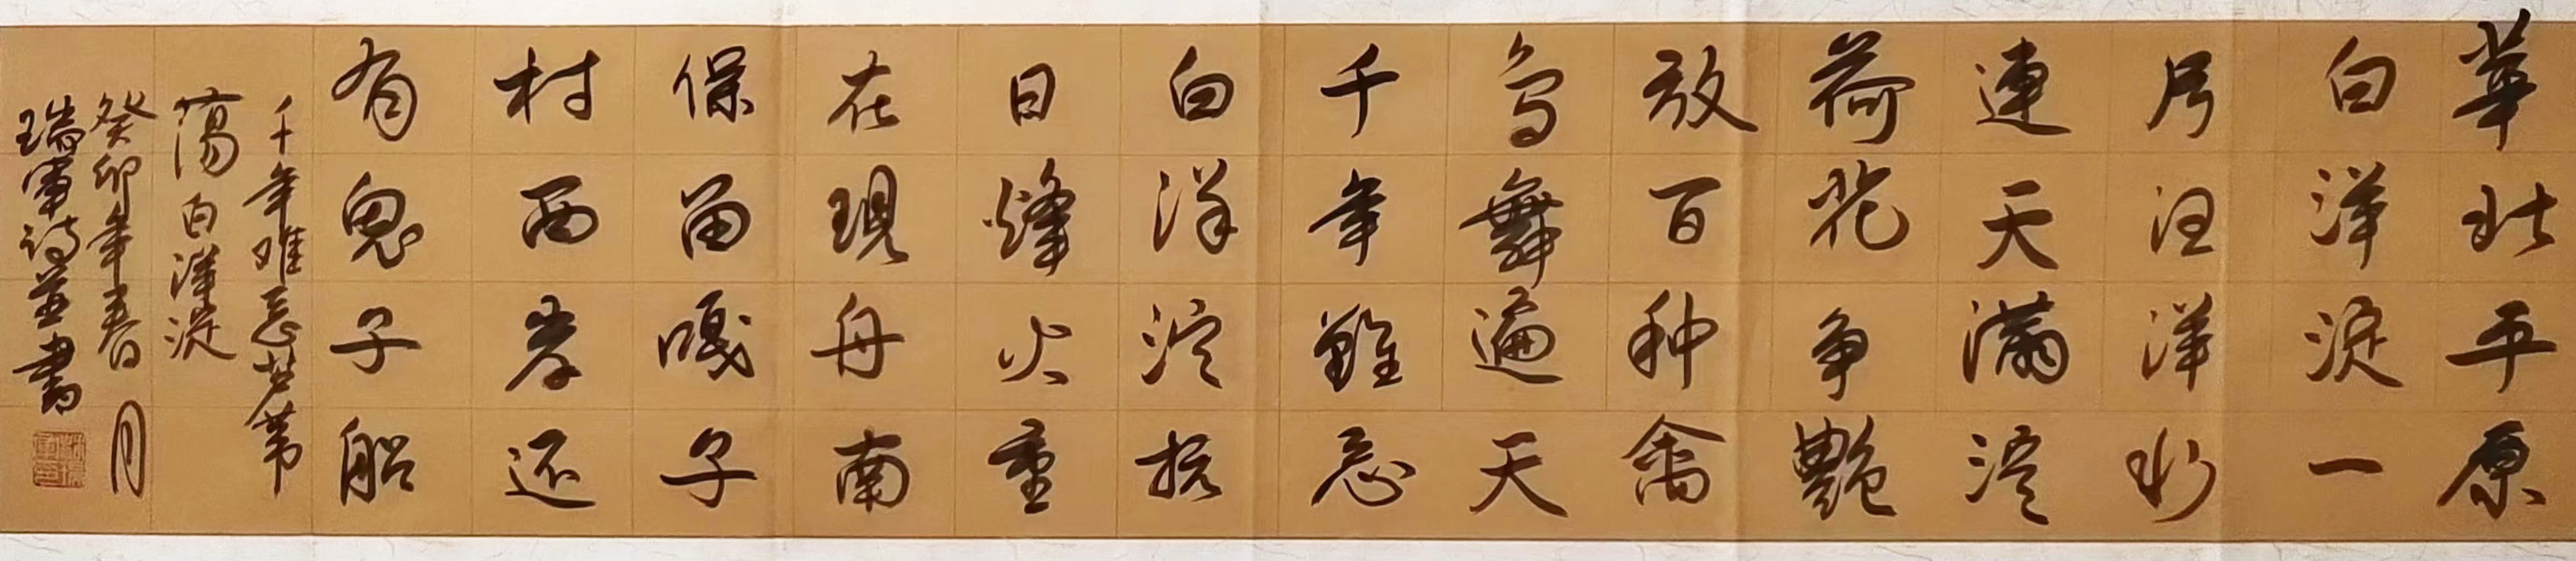 華北平原
白洋淀一
片汪洋水
連天滿淀
荷花争艷
放百种禽
鸟舞遍天
千年難忘
白洋淀抗
日烽火重
在現舟南
保留嘎子
村西岸还
有鬼子船
千年难忘芦苇
荡白洋淀
癸卯年春月
瑞軍诗並書